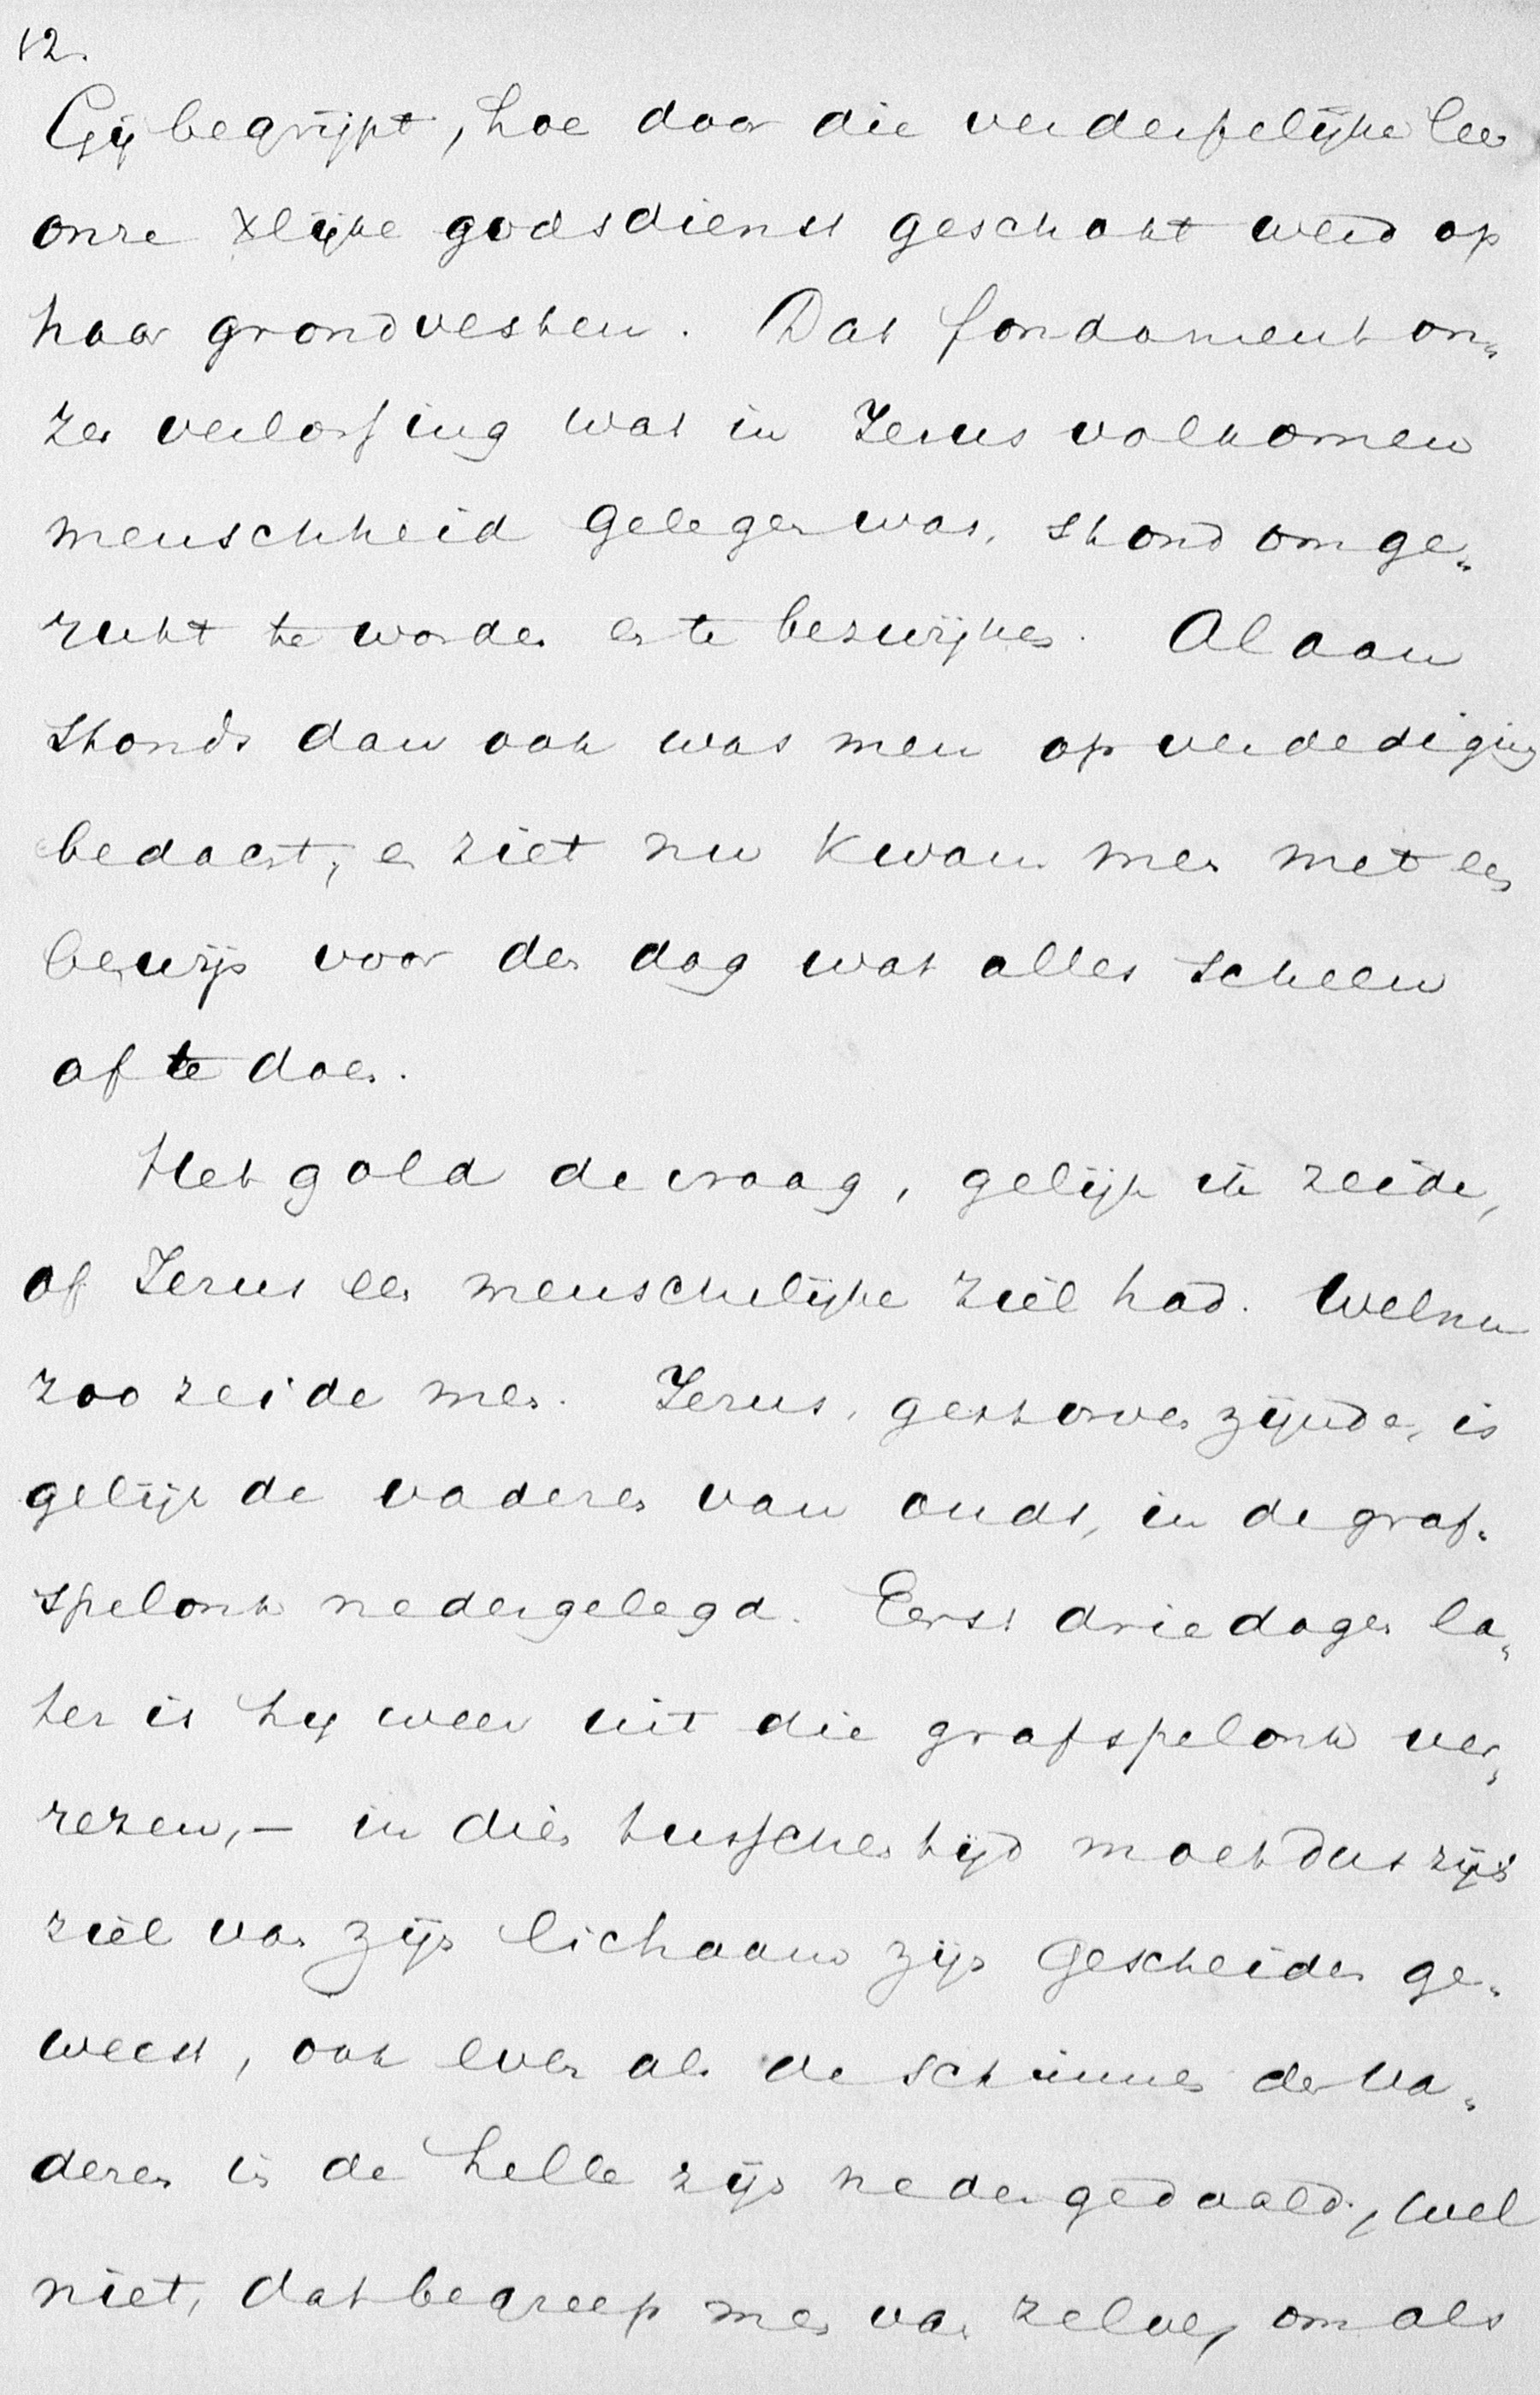 12.
Gij begrijpt, hoe door die verderfelijke leer
onze Xlijke godsdienst geschokt werd op
haar grondvesten. Dat fondament on„
zer verlossing wat in Jezus volkomen
menschheid gelegen was, stond omge„
rukt te worden en te bezwijken. Al aan
stonds dan ook was men op verdediging
bedacht, en ziet nu kwam men met een
bewijs voor den dag wat alles scheen
af te doen.
Het gold de vraag, gelijk ik zeide,
of Jezus een menschelijke ziel had. Welnu
zoo zeide men. Jezus, gestorven zijnde, is
gelijk de vaderen van ouds, in de graf„
spelonk nedergelegd. Eerst drie dagen la„
ter is hij weer uit die grafspelonk ver„
rezen, – in dien tusschentijd moet dus zijn
ziel van zijn lichaam zijn gescheiden ge„
weest, ook even als de schimmen der va„
deren in de helle zijn nedergedaald, wel
niet, dat begreep men van zelve, om als